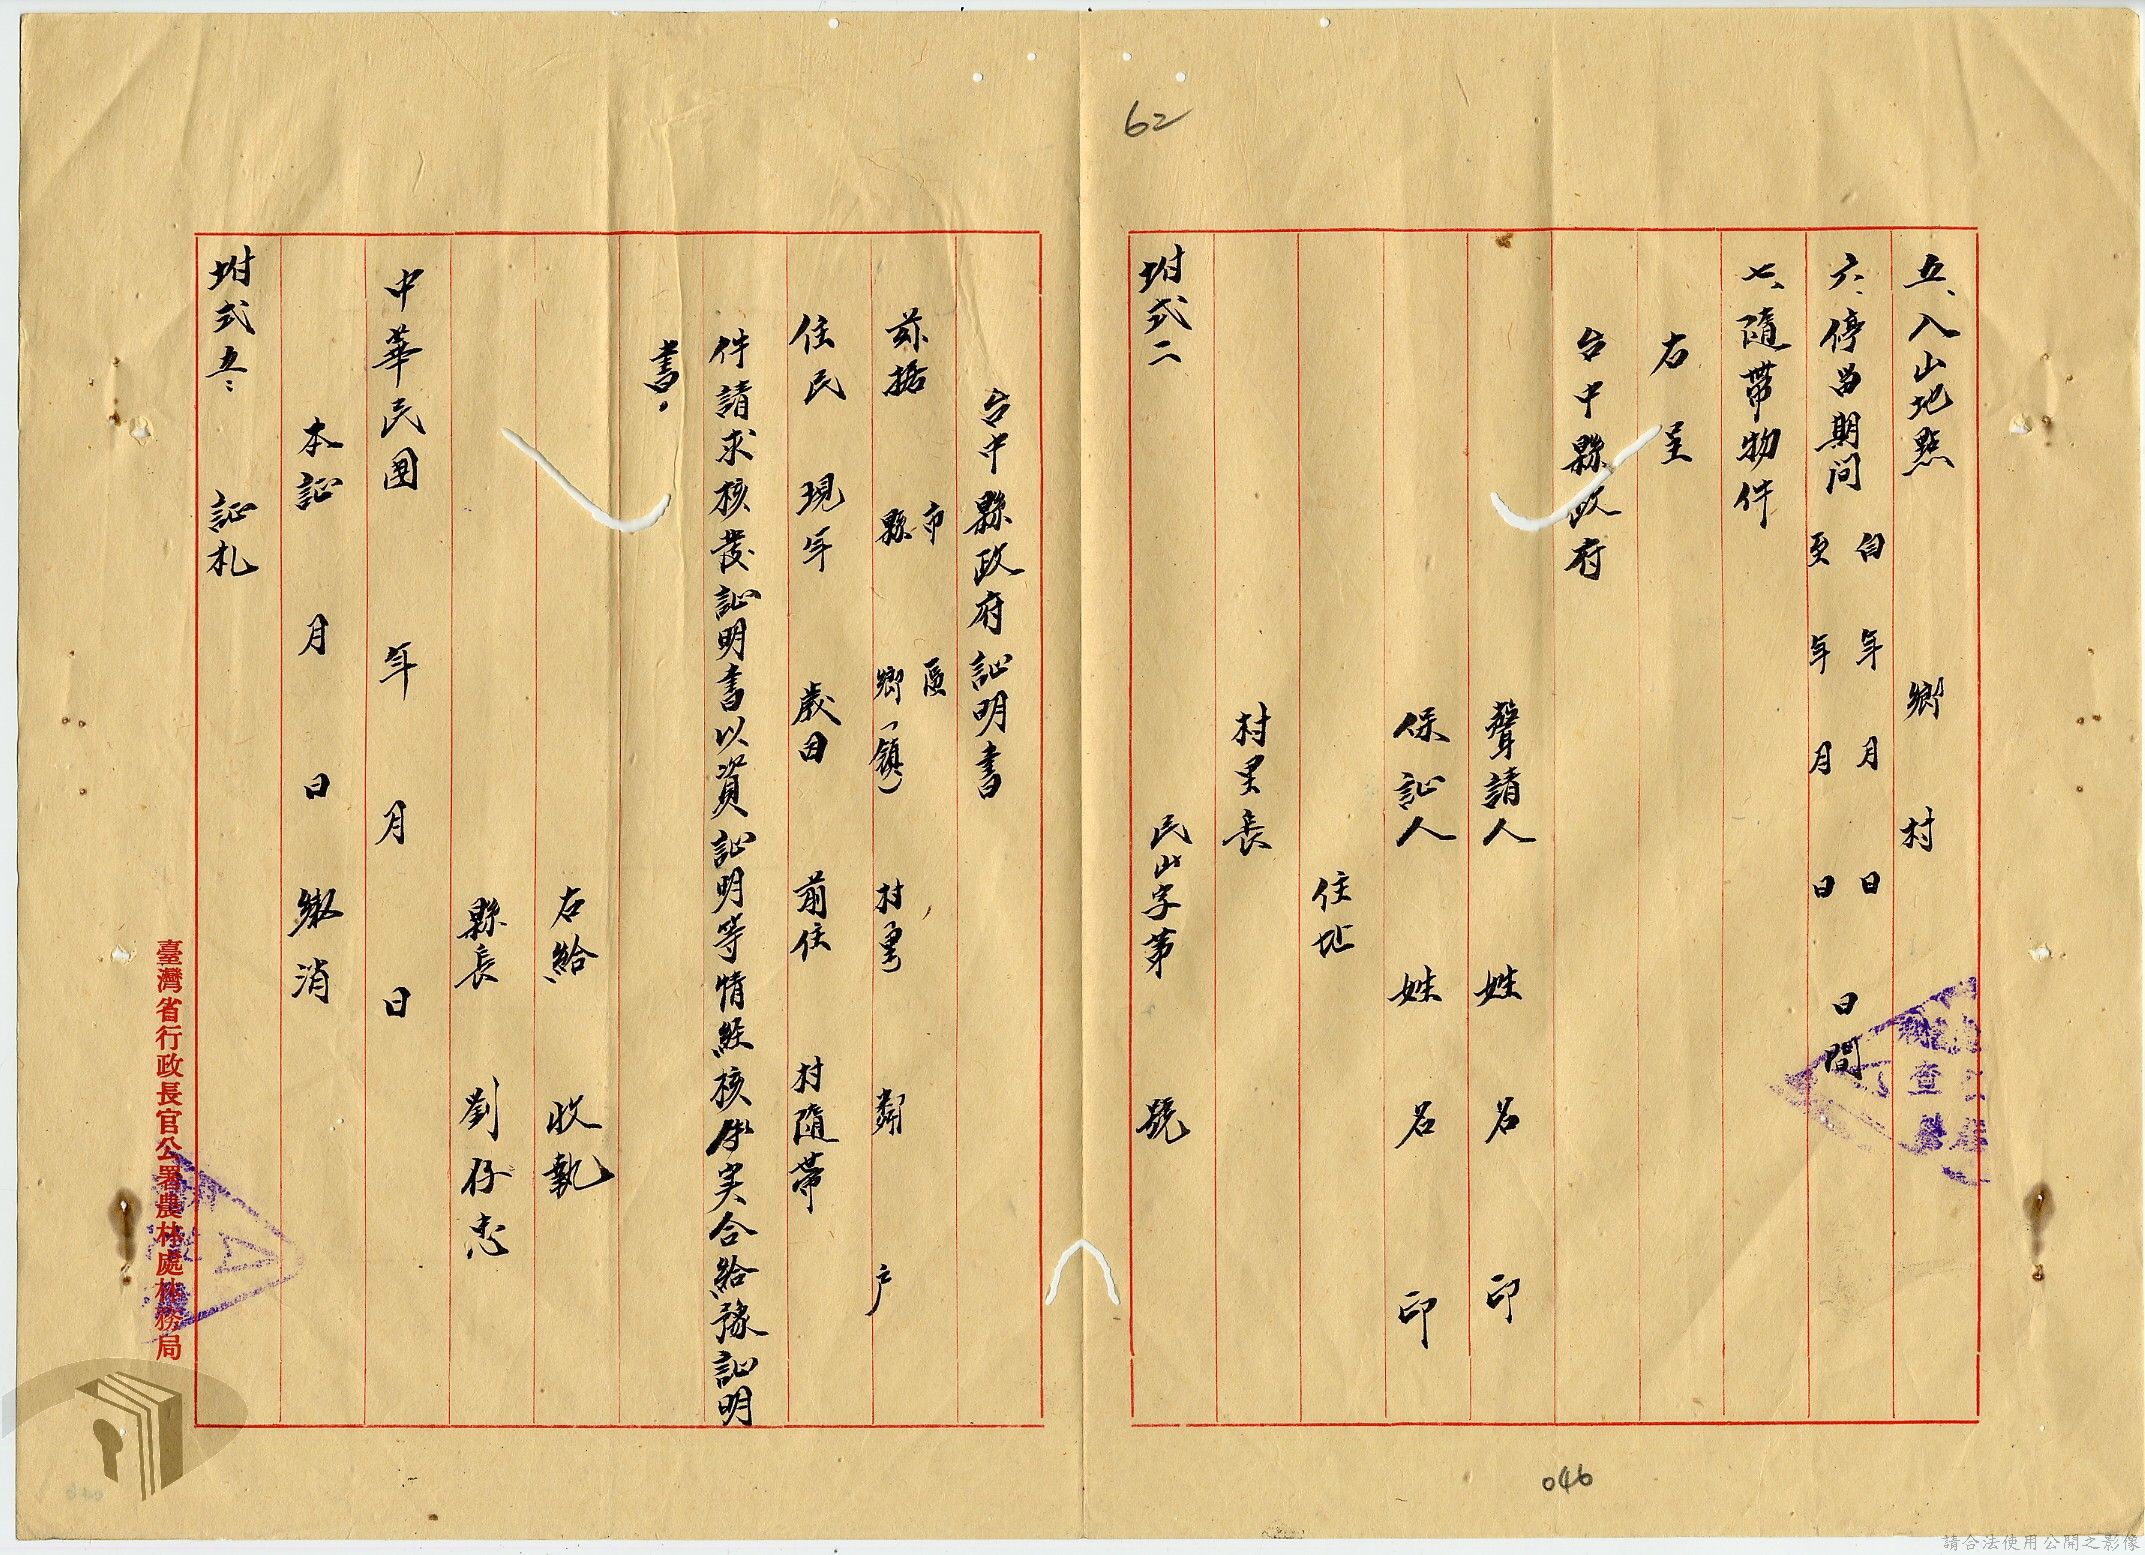 62
五、入山地點 鄉 村
六、停留期间 自 年 月 日 至 年 月 日 日間
七、隨帶物件
右呈
台中縣政府
聲請人 姓名 印
保証人 姓名 印
住址
村里長
坿式二 民山字第 號
台中縣政府証明書
茲据 縣市 鄉(鎮)區 村里 鄰 户
住民 現年 歲因 前往 村隨帶
件請求核發証明書以資証明等情経核屬实合給豫証明
書。
右給 收執
縣長 劉存忠
中華民国 年 月 日
本証 月 日繳消
坿式五: 証札
臺灣省行政長官公署農林處林務局
046
請合法使用公開之影像